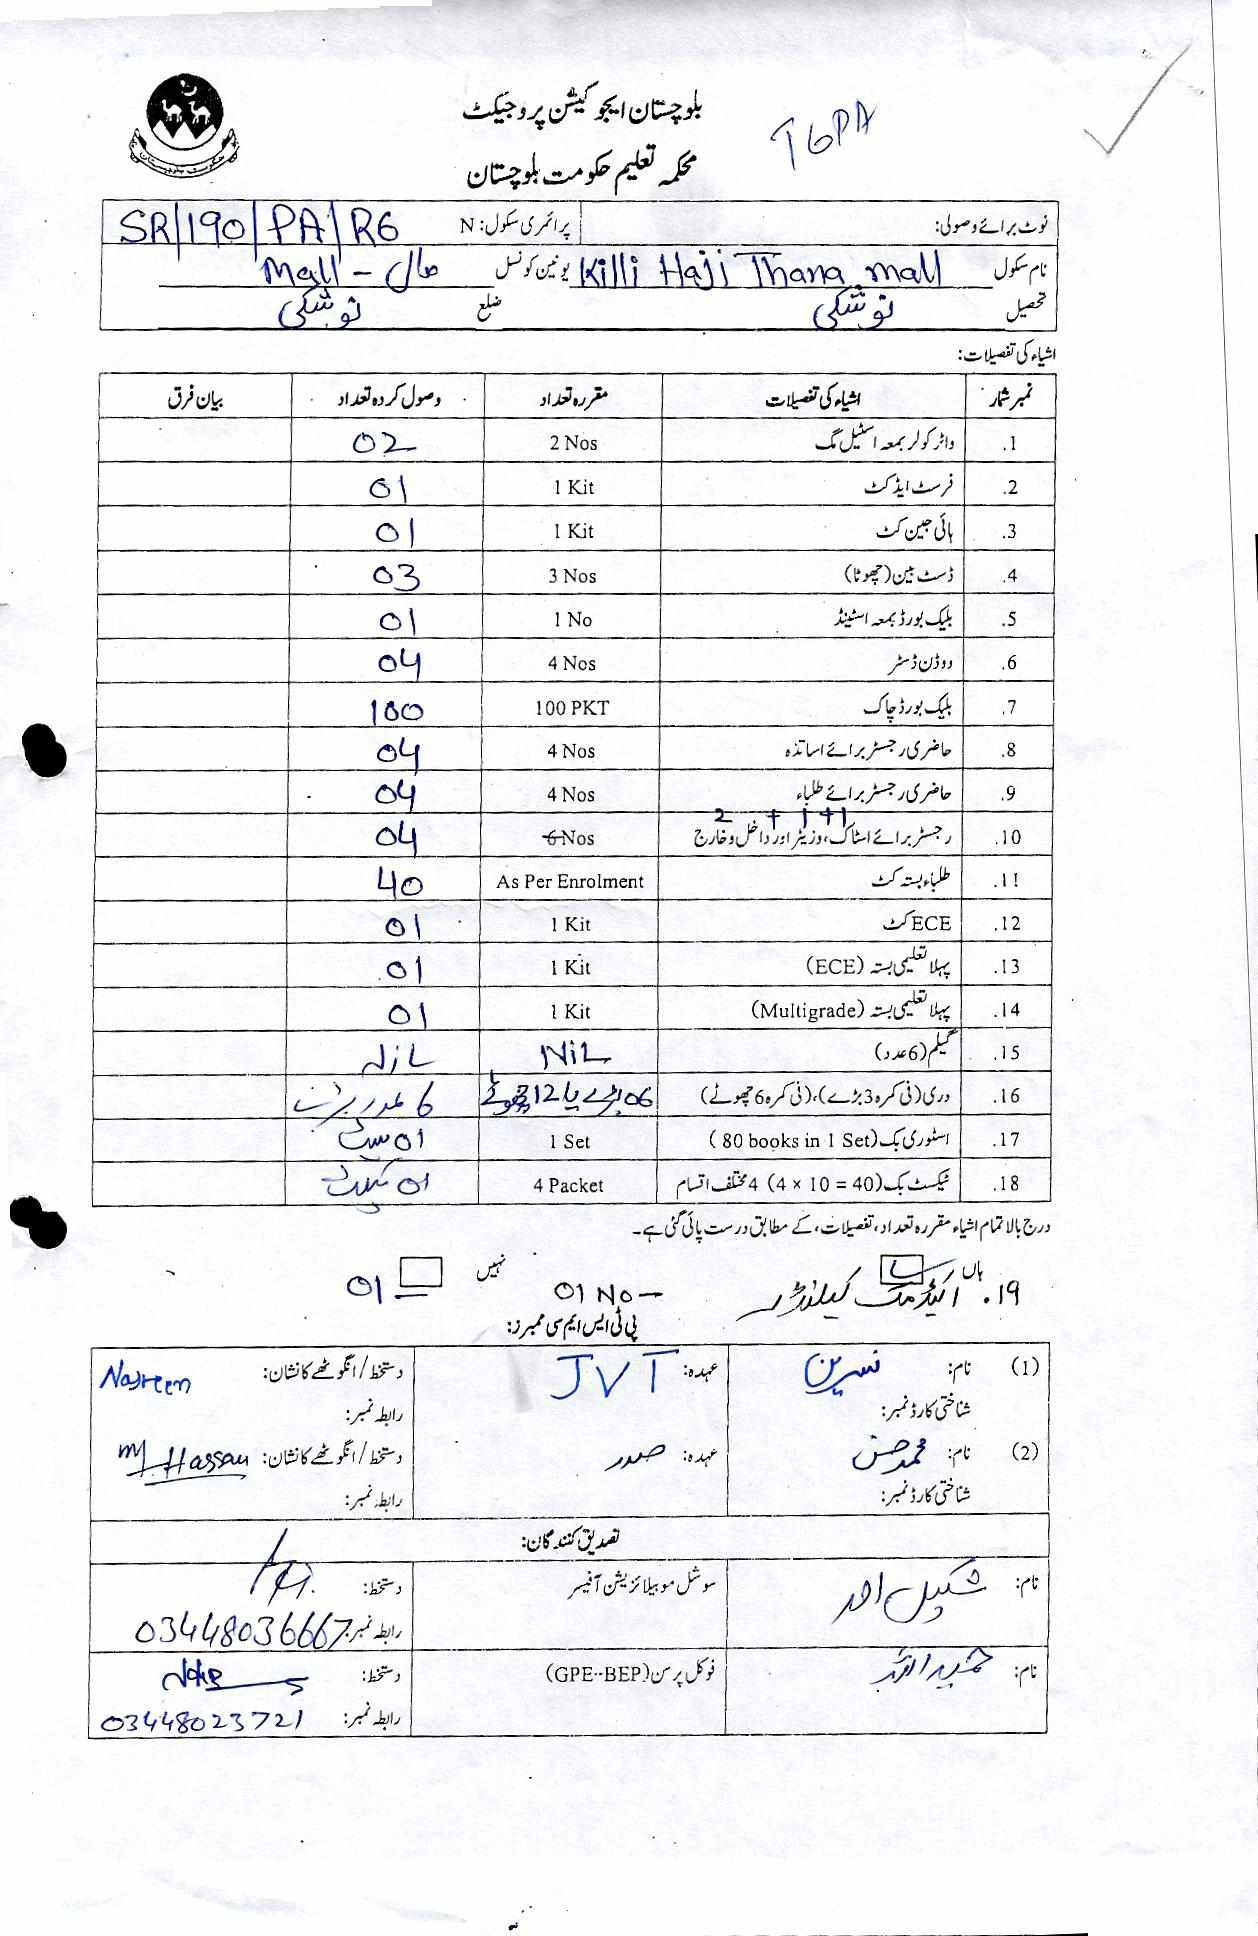 بلوچستان ایجوکیشن پروجیکٹ
TGPA
محکمہ تعلیم حکومت بلوچستان
نوٹ برائے وصولی: پرائمری سکول: N SR/190/PA/R6
نام سکول Killi Haji Thana mall یونین کونسل مال - Mall
تحصیل نوشکی ضلع نوشکی
اشیاء کی تفصیلات:
نمبر شمار اشیاء کی تفصیلات مقررہ تعداد وصول کردہ تعداد بیان فرق
1. واٹر کولر بمعہ اسٹیل مگ 2 Nos 02
2. فرسٹ ایڈ کٹ 1 Kit 01
3. ہائی جین کٹ 1 Kit 01
4. ڈسٹ بین (چھوٹا) 3 Nos 03
5. بلیک بورڈ بمعہ اسٹینڈ 1 No 01
6. ووڈن ڈسٹر 4 Nos 04
7. بلیک بورڈ چاک 100 PKT 100
8. حاضری رجسٹر برائے اساتذہ 4 Nos 04
9. حاضری رجسٹر برائے طلباء 4 Nos 04
2 + 1 + 1
10. رجسٹر برائے اسٹاک، وزیٹر اور داخل و خارج 6 Nos 04
11. طلباء بستہ کٹ As Per Enrolment 40
12. ECE کٹ 1 Kit 01
13. پہلا تعلیمی بستہ (ECE) 1 Kit 01
14. پہلا تعلیمی بستہ (Multigrade) 1 Kit 01
15. گیلم (6 عدد) NiL NiL
16. دری (فی کمرہ 3 بڑے)، (فی کمرہ 6 چھوٹے) 06 بڑے یا 12 چھوٹے 6 عدد بڑے
17. اسٹوری بک (80 books in 1 Set) 1 Set 01 سیٹ
18. ٹیکسٹ بک (4 × 10 = 40) 4 مختلف اقسام 4 Packet 01
درج بالا تمام اشیاء مقررہ تعداد، تفصیلات، کے مطابق درست پائی گئی ہے۔
ہاں نہیں
19. اکیڈمک کیلنڈر 01 No - 01
پی ٹی ایس ایم سی ممبرز:
(1) نام: نسرین عہدہ: JVT دستخط / انگوٹھے کا نشان: Nasreen
شناختی کارڈ نمبر: رابطہ نمبر:
(2) نام: محمد حسن عہدہ: صدر دستخط / انگوٹھے کا نشان: M. Hassan
شناختی کارڈ نمبر: رابطہ نمبر:
تصدیق کنندگان:
نام: شکیل احمد سوشل موبیلائزیشن آفیسر دستخط:
رابطہ نمبر: 03448036667
نام: حمید اللہ فوکل پرسن (GPE-BEP) دستخط:
رابطہ نمبر: 03448023721